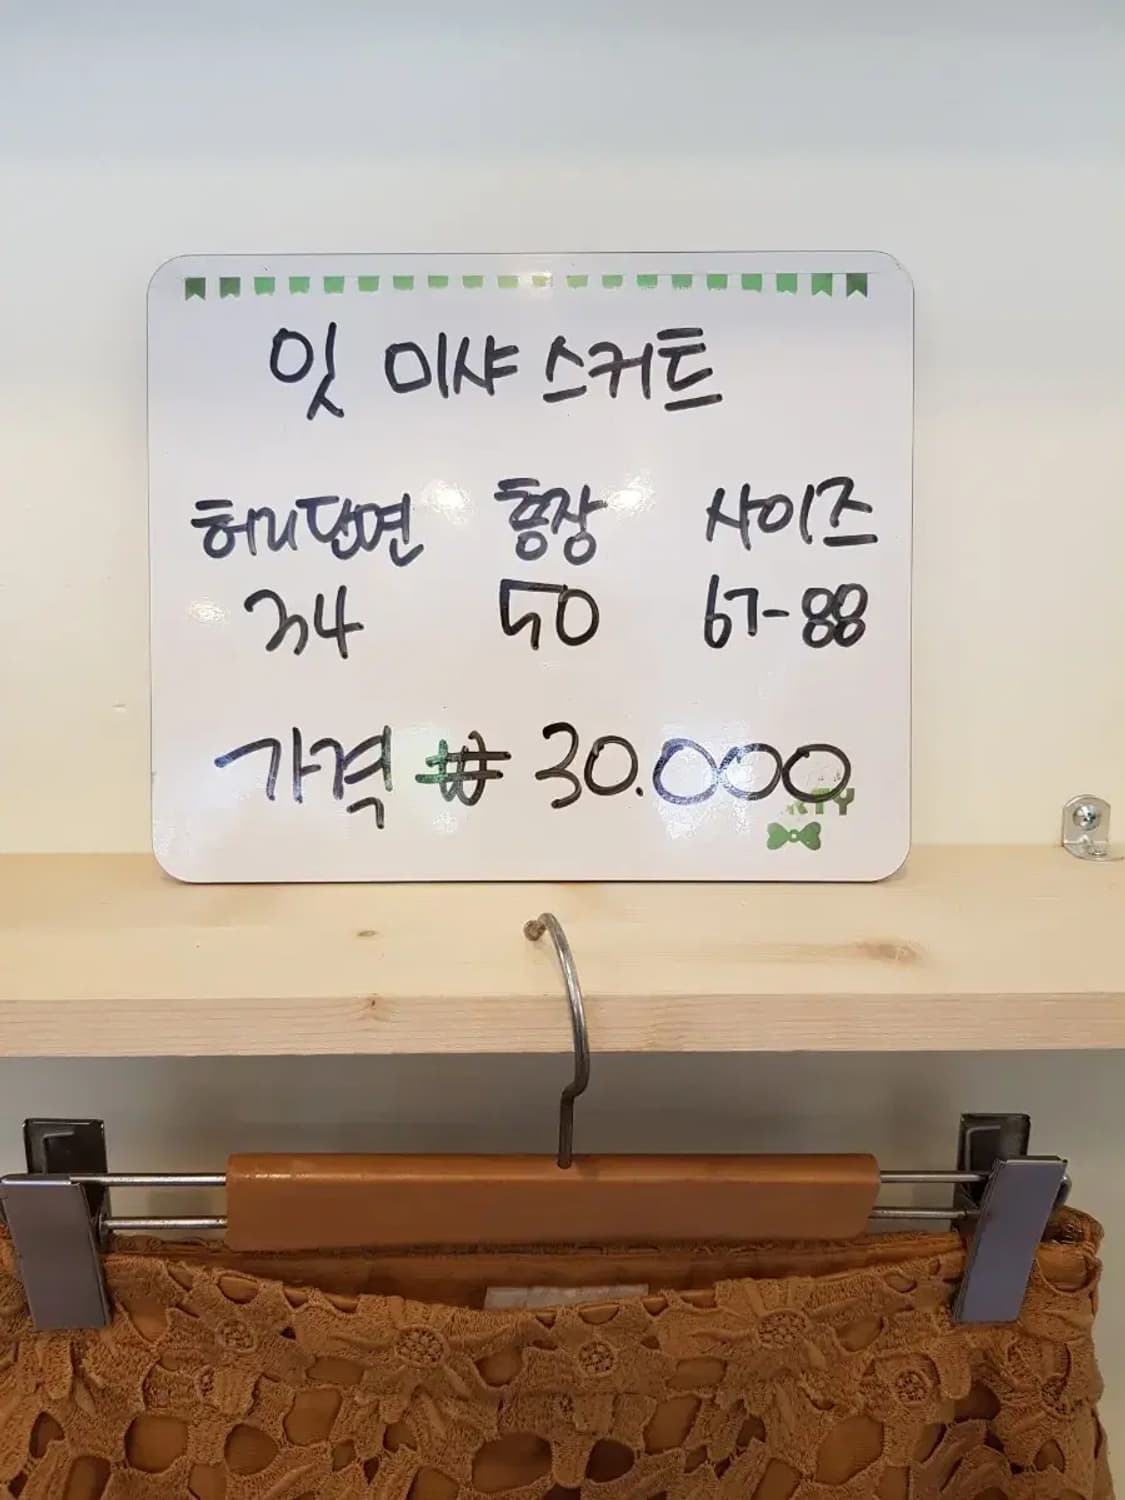 잇 미샤 스커트
허리단면 총장 사이즈
34 50 67-88
가격 ₩ 30.000